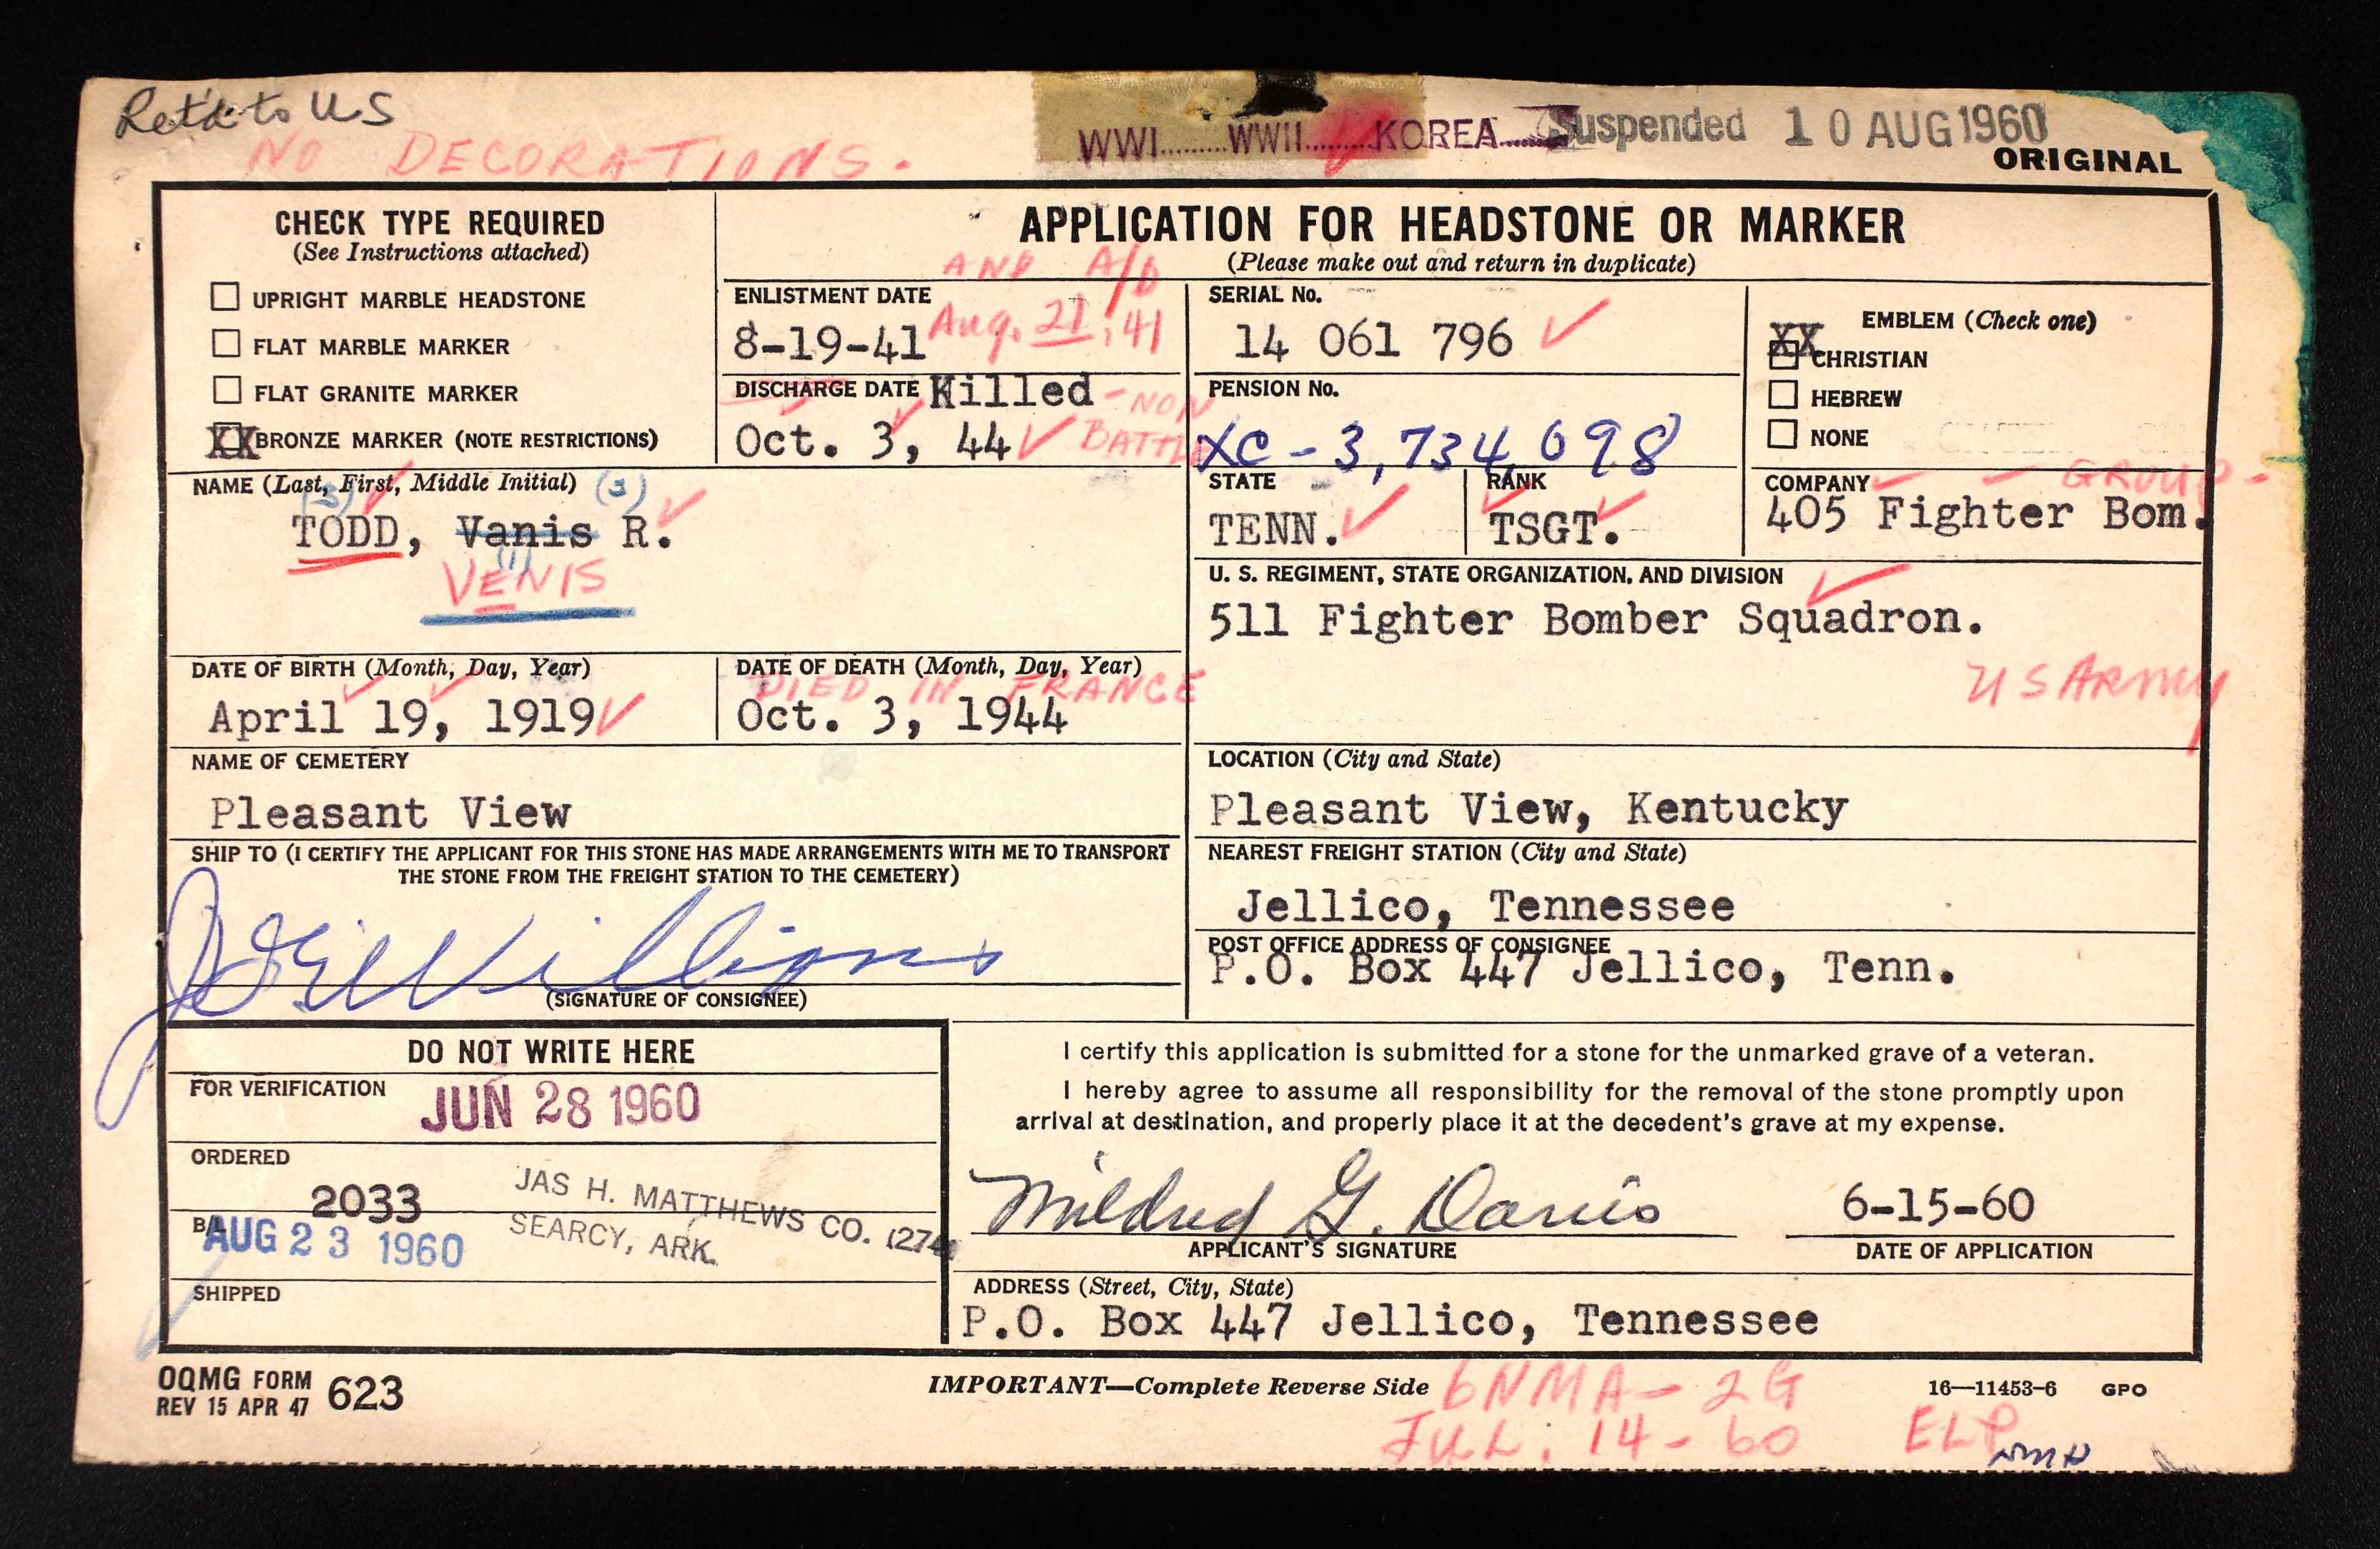 Ret'd to US
NO DECORATIONS.
WWI.........WWII.........KOREA......... Suspended 10 AUG 1960
ORIGINAL
CHECK TYPE REQUIRED
(See Instructions attached)
UPRIGHT MARBLE HEADSTONE
FLAT MARBLE MARKER
FLAT GRANITE MARKER
XX BRONZE MARKER (NOTE RESTRICTIONS)
APPLICATION FOR HEADSTONE OR MARKER
(Please make out and return in duplicate)
AND A/D
ENLISTMENT DATE
8-19-41 Aug. 21, 41
DISCHARGE DATE Killed - NON
Oct. 3, 44 BATTLE
SERIAL No.
14 061 796
PENSION No.
XC - 3,734 098
EMBLEM (Check one)
XX
CHRISTIAN
HEBREW
NONE
NAME (Last, First, Middle Initial) (3)
(3)
TODD, Vanis R.
(1)
VENIS
STATE
TENN.
RANK
TSGT.
COMPANY GROUP-
405 Fighter Bom.
U. S. REGIMENT, STATE ORGANIZATION, AND DIVISION
511 Fighter Bomber Squadron.
US ARMY
DATE OF BIRTH (Month, Day, Year)
April 19, 1919
DATE OF DEATH (Month, Day, Year)
DIED IN FRANCE
Oct. 3, 1944
NAME OF CEMETERY
Pleasant View
LOCATION (City and State)
Pleasant View, Kentucky
SHIP TO (I CERTIFY THE APPLICANT FOR THIS STONE HAS MADE ARRANGEMENTS WITH ME TO TRANSPORT
THE STONE FROM THE FREIGHT STATION TO THE CEMETERY)
Williams
(SIGNATURE OF CONSIGNEE)
NEAREST FREIGHT STATION (City and State)
Jellico, Tennessee
POST OFFICE ADDRESS OF CONSIGNEE
P.O. Box 447 Jellico, Tenn.
DO NOT WRITE HERE
FOR VERIFICATION
JUN 28 1960
ORDERED
2033
JAS H. MATTHEWS CO. (274)
SEARCY, ARK.
B/L
AUG 23 1960
SHIPPED
I certify this application is submitted for a stone for the unmarked grave of a veteran.
I hereby agree to assume all responsibility for the removal of the stone promptly upon
arrival at destination, and properly place it at the decedent's grave at my expense.
Mildred G. Davis
APPLICANT'S SIGNATURE
6-15-60
DATE OF APPLICATION
ADDRESS (Street, City, State)
P.O. Box 447 Jellico, Tennessee
OQMG FORM
REV 15 APR 47 623
IMPORTANT—Complete Reverse Side
6NMA-2G
JUL. 14-60
16—11453-6 GPO
ELP